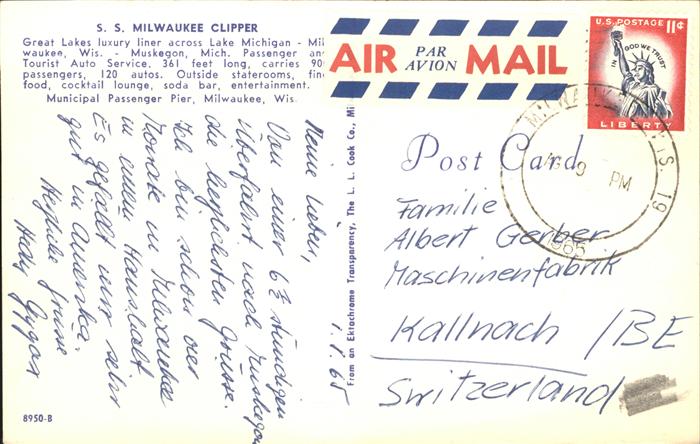 S. S. MILWAUKEE CLIPPER
Great Lakes luxury liner across Lake Michigan - Mil
waukee, Wis. - Muskegon, Mich. Passenger and
Tourist Auto Service. 361 feet long, carries 900
passengers, 120 autos. Outside staterooms, fine
food, cocktail lounge, soda bar, entertainment.
Municipal Passenger Pier, Milwaukee, Wis.
AIR PAR AVION MAIL
U.S. POSTAGE 11¢
IN GOD WE TRUST
LIBERTY
MILWAUKEE, WIS. 19
9 PM
1965
Post Card
Familie
Albert Gerber
Maschinenfabrik
Kallnach /BE
Switzerland
From an Ektachrome Transparency, The L. L. Cook Co., Mi
1. 8. 65
Meine Lieben,
Von einer 6½ stündigen
Überfahrt nach Muskegon
die herzlichsten Grüsse.
Ich bin schon vier
Monate in Milwaukee
in einem Haushalt
Es gefällt mir sehr
gut in Amerika.
Herzliche Grüsse
Hedy Gygax
8950-B